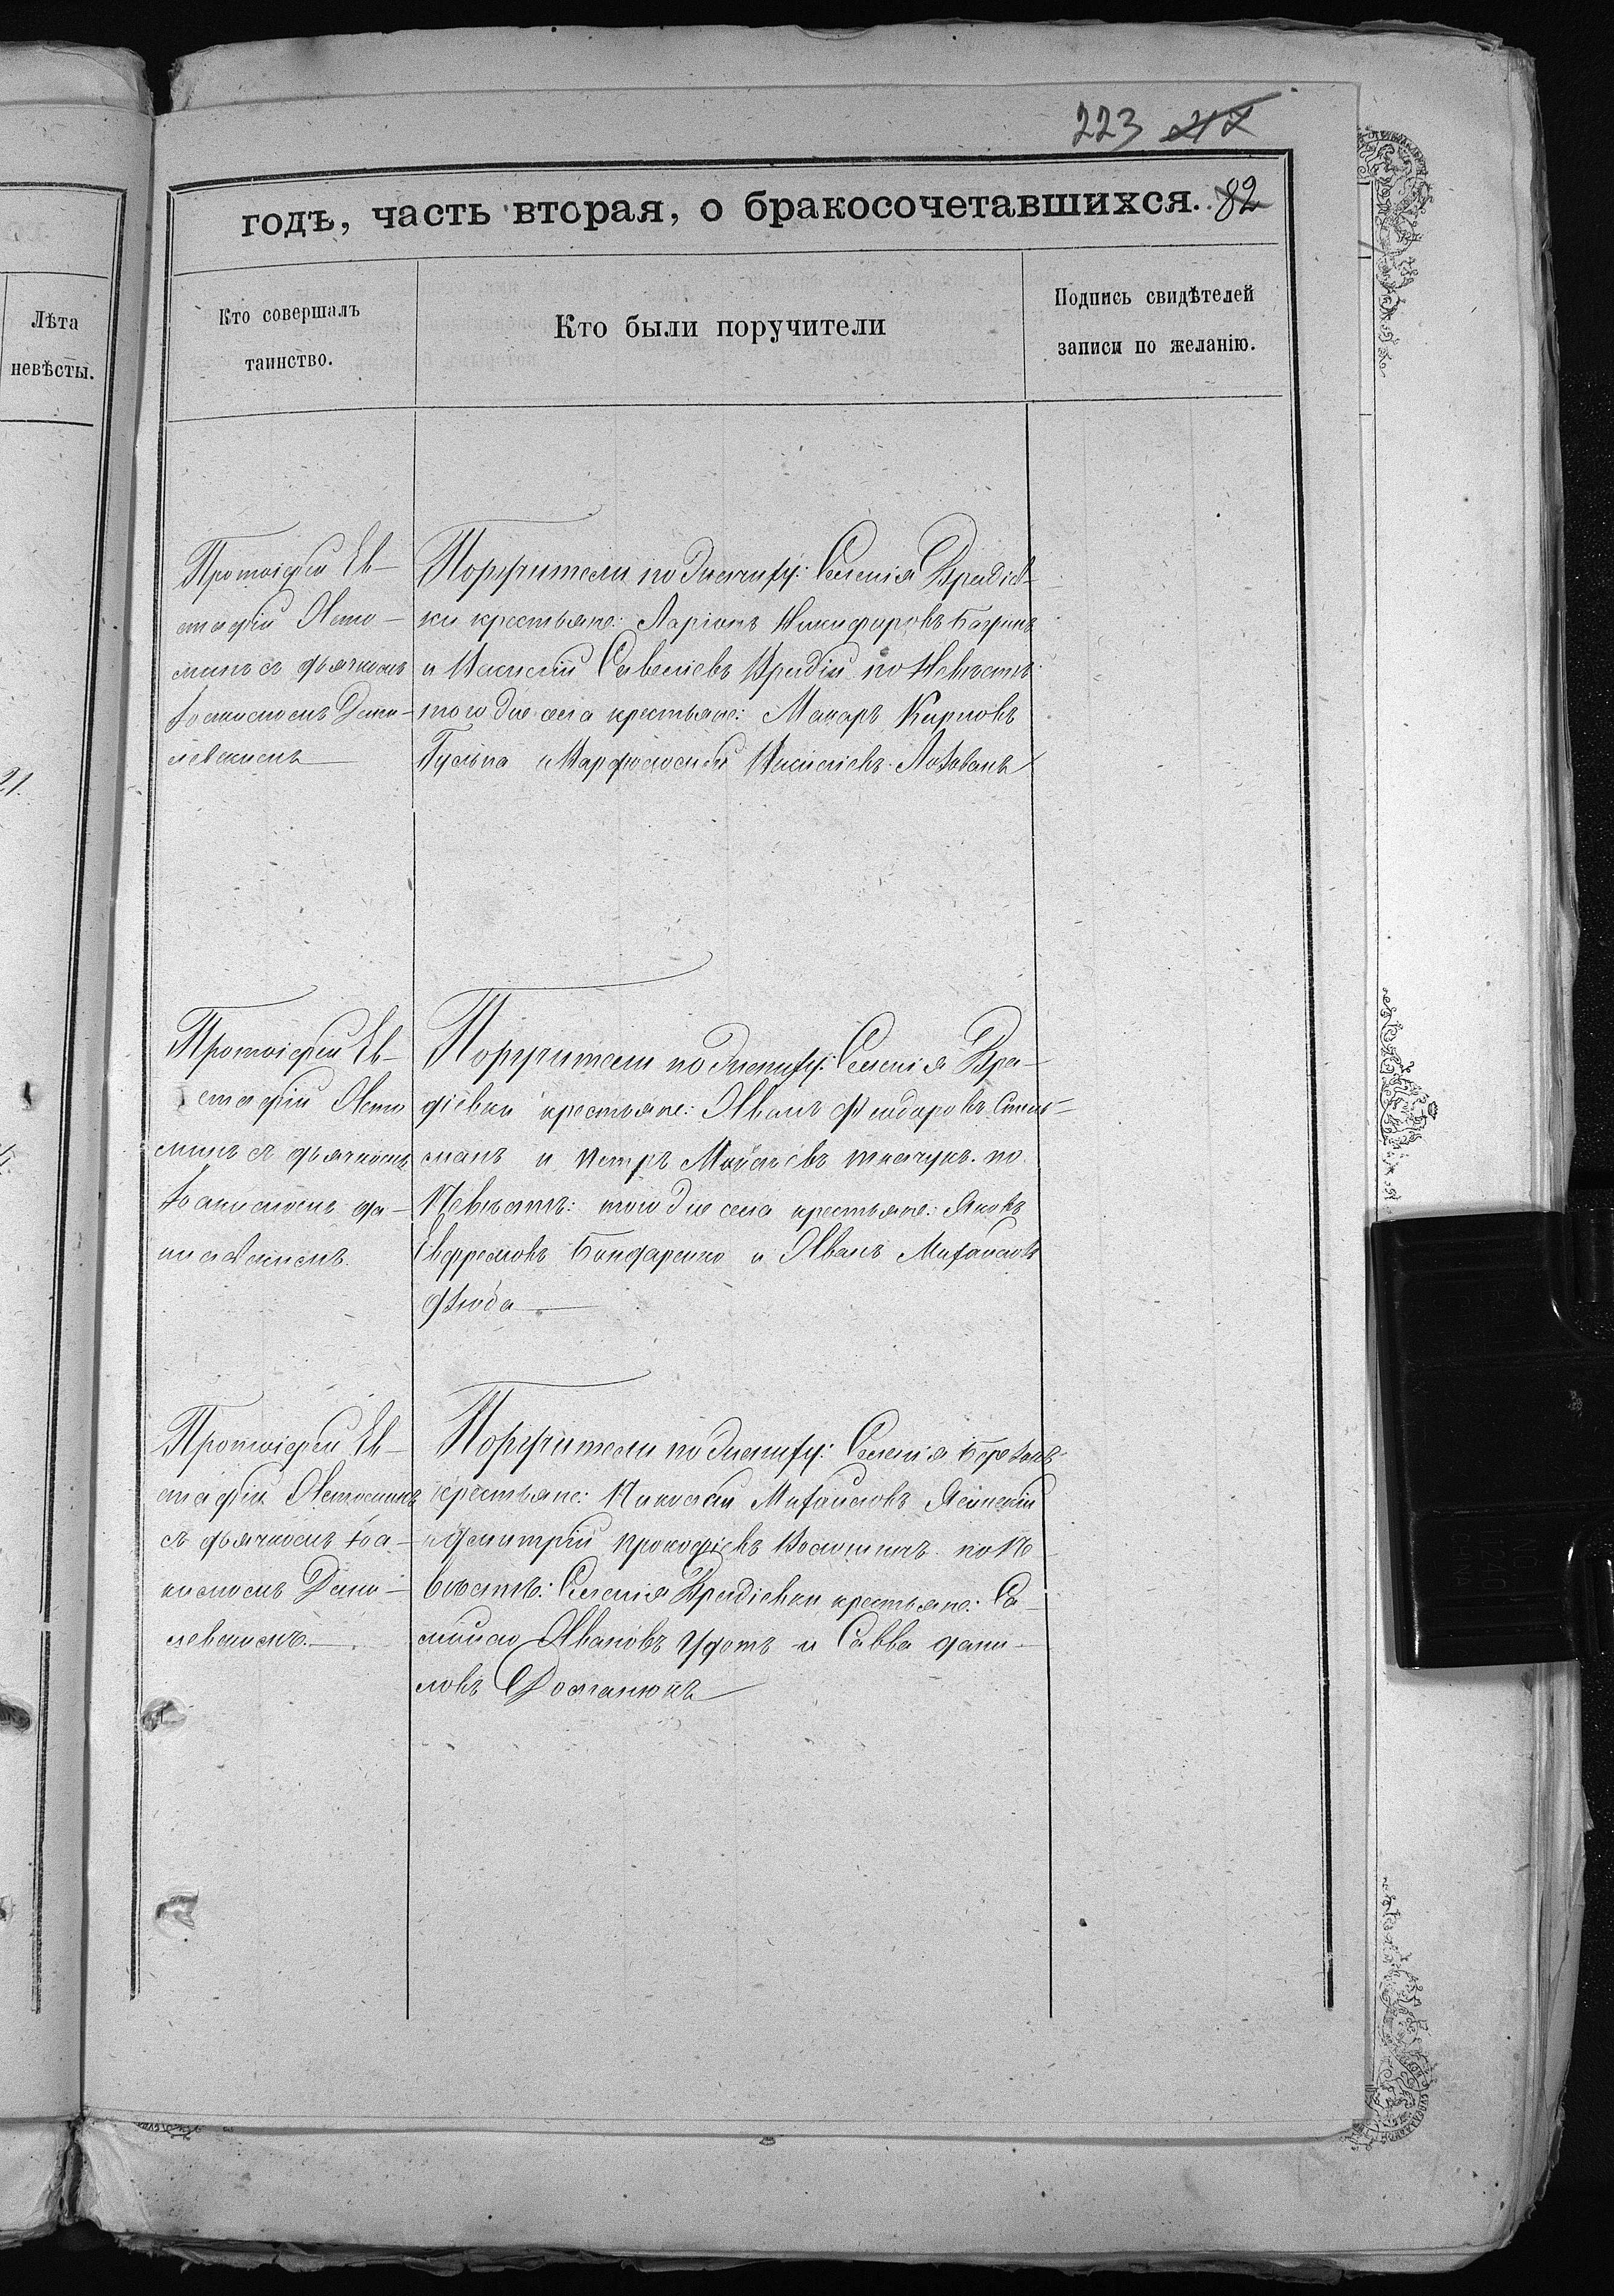 223
годъ, часть вторая, о бракосочетавшихся. 82
Лѣта
невѣсты.
Кто совершалъ
таинство.
Кто были поручители
Подпись свидѣтелей
записи по желанію.
21.
Протоіерей Ев-
стафій
минъ съ дьячкомъ
Іоанномъ Дани-
левскимъ
Поручители по жениху: Селенія Врадіев-
ки крестьяне: Ларіонъ Никифоровъ
и Василій Савеліевъ Врадій по Невѣстѣ:
того же села крестьяне: Макаръ Кириловъ
Гулька и Василіевъ Лозованъ
Протоіерей Ев-
стафій
минъ съ дьячкомъ
Іоанномъ Да-
нилевскимъ.
Поручители по жениху: Селенія Вра-
діевки крестьяне: Иванъ Фіодоровъ
и Петръ Ткачукъ. по
Невѣстѣ: того же села крестьяне: Яковъ
Евфремовъ Бондаренко и Иванъ Михайловъ
Дзюба
Протоіерей Ев-
стафій
съ дьячкомъ Іоа-
нномъ Дани-
левскимъ.
Поручители по жениху: Селенія
крестьяне: Николай Михайловъ
и Димитрій Прокофіевъ Волошинъ по Не
вѣстѣ: Селенія Врадіевки крестьяне: Са-
мийло Ивановъ и Савва Дани-
ловъ